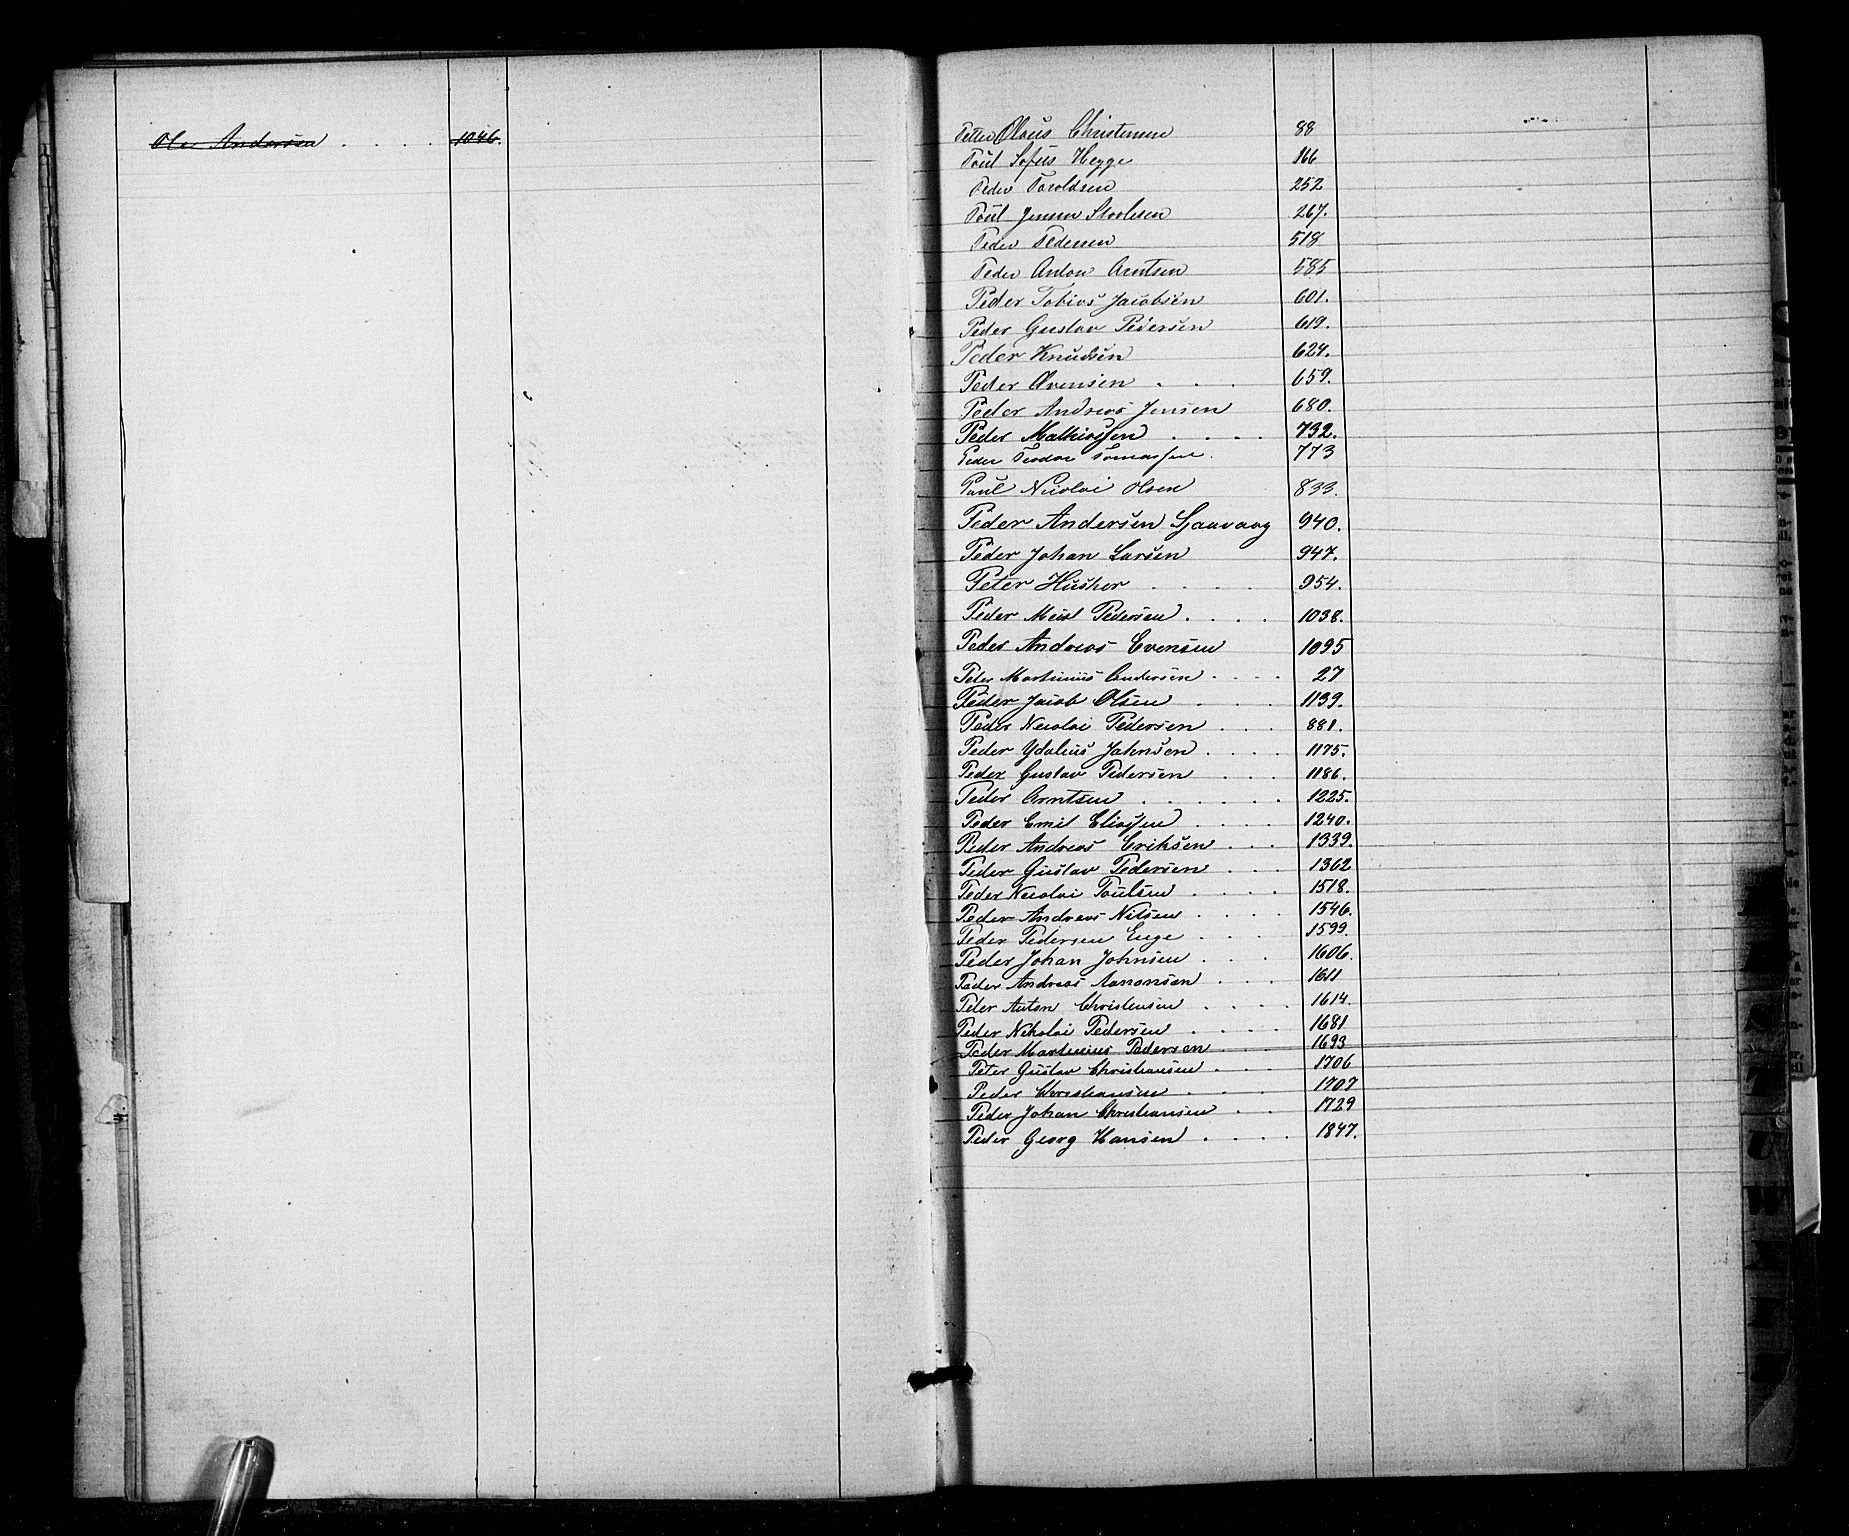 Ole Andersen . . . . . 1046.
Petter Olaus Christensen 88
Poul Sofus Hegge 166
Peder Taroldsen 252
Poul Jensen 267.
Peder Pedersen 518
Peder Anton Arntsen 585
Peder Tobias Jacobsen 601.
Peder Gustav Pedersen 619.
Peder Knudsen 624.
Peder Evensen . . . 659.
Peder Andreas Jensen 680.
Peder Mathiassen . . . . 732.
Peder Teodor Tomassen . 773
Paul Nicolai Olsen 833.
Peder Andersen 940.
Peder Johan Larsen 947.
Peter Husher . . . . 954.
Peder Meist Pedersen . . . . 1038.
Peder Andreas Evensen 1095
Peter Martinius Andersen . . . . 27
Peder Jacob Olsen . . . 1139.
Peder Nicolai Pedersen . . . 881.
Peder Ydalius Jahnsen . . . . 1175.
Peder Gustav Pedersen . . . 1186.
Peder Arntsen . . . . . . 1225.
Peder Emil Eliassen . . . . 1240.
Peder Andreas Eriksen . . . 1339.
Peder Gustav Pedersen . . . 1362
Peder Nicolai Poulsen . . . . 1518.
Peder Andreas Nilsen . . . . 1546.
Peder Pedersen Enge . . . . 1599.
Peder Johan Johnsen . . . 1606.
Peder Andreas Aanonsen . . . 1611
Peter Anton Christensen . . . 1614.
Peder Nikolai Pedersen . . . . 1681
Peder Martinius Pedersen . . . 1693
Peter Gustav Christiansen . . . 1706
Peder Christiansen . . . 1707
Peder Johan Christiansen . . 1729
Peder Georg Hansen . . . . 1847.
R
S
T
U
W